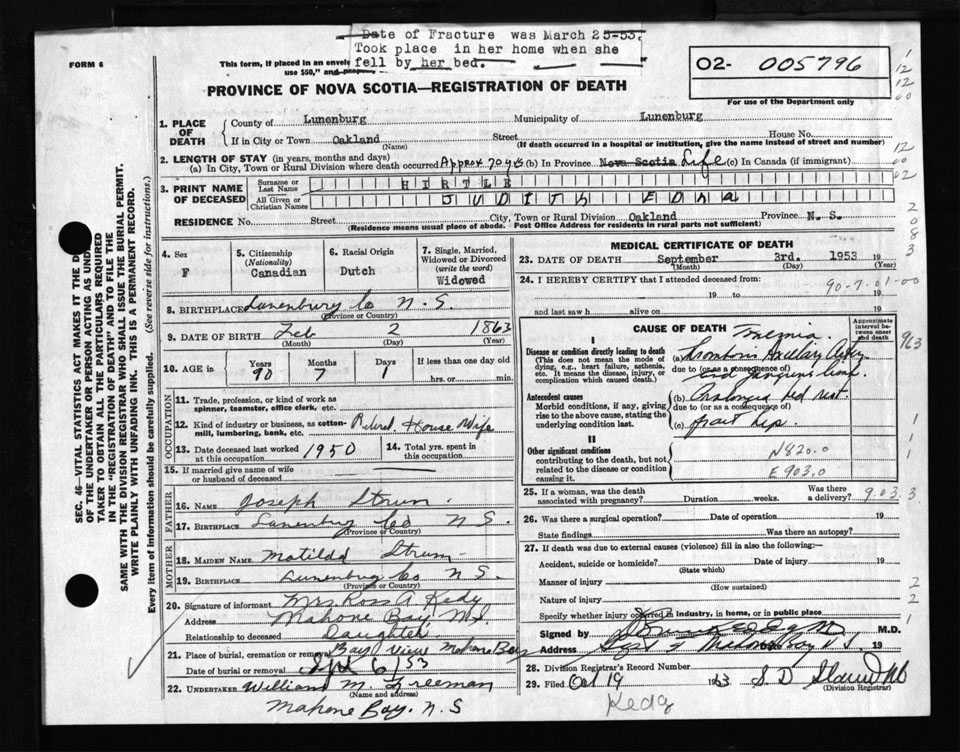 Date of Fracture was March 25-53.
Took place in her home when she
fell by her bed.
FORM 6
This form, if placed in an envelope
use $50," and
PROVINCE OF NOVA SCOTIA—REGISTRATION OF DEATH
02- 005796
For use of the Department only
1. PLACE OF DEATH
County of Lunenburg Municipality of Lunenburg
If in City or Town Oakland Street House No.
(Name) (If death occurred in a hospital or institution, give the name instead of street and number)
2. LENGTH OF STAY (in years, months and days)
(a) In City, Town or Rural Division where death occurred Approx 70 yrs (b) In Province Nova Scotia Life (c) In Canada (if immigrant)
3. PRINT NAME OF DECEASED
Surname or Last Name HIRTLE
All Given or Christian Names JUDITH EDNA
RESIDENCE No. Street City, Town or Rural Division Oakland Province N. S.
(Residence means usual place of abode. Post Office Address for residents in rural parts not sufficient)
4. Sex F
5. Citizenship (Nationality) Canadian
6. Racial Origin Dutch
7. Single, Married, Widowed or Divorced (write the word) Widowed
8. BIRTHPLACE Lunenburg Co N.S.
(Province or Country)
9. DATE OF BIRTH Feb 2 1863
(Month) (Day) (Year)
10. AGE in Years 90 Months 7 Days 1 If less than one day old hrs. or min.
OCCUPATION
11. Trade, profession, or kind of work as spinner, teamster, office clerk, etc.
12. Kind of industry or business, as cotton-mill, lumbering, bank, etc. Retired House Wife
13. Date deceased last worked at this occupation 1950
14. Total yrs. spent in this occupation
15. If married give name of wife or husband of deceased
FATHER
16. Name Joseph Strum
17. Birthplace Lunenburg Co N.S.
(Province or Country)
MOTHER
18. Maiden Name Matilda Strum
19. Birthplace Lunenburg Co N.S.
(Province or Country)
20. Signature of informant Mrs Ross A Kedy
Address Mahone Bay N.S.
Relationship to deceased Daughter
21. Place of burial, cremation or removal Bay View Mahone Bay
Date of burial or removal Sept 6/53
22. Undertaker William M. Freeman
(Name and address)
Mahone Bay. N.S
MEDICAL CERTIFICATE OF DEATH
23. DATE OF DEATH September 3rd. 1953
(Month) (Day) (Year)
24. I HEREBY CERTIFY that I attended deceased from:
90-7-01-00
19 to 19
and last saw h alive on 19
CAUSE OF DEATH
Approximate interval between onset and death
I
Disease or condition directly leading to death
(This does not mean the mode of dying, e.g., heart failure, asthenia, etc. It means the disease, injury, or complication which caused death.)
(a)
due to (or as a consequence of)
Antecedent causes
Morbid conditions, if any, giving rise to the above cause, stating the underlying condition last.
(b) Prolonged bed rest.
due to (or as a consequence of)
(c) fract hip.
II
Other significant conditions
contributing to the death, but not related to the disease or condition causing it.
N820.0
E903.0
25. If a woman, was the death associated with pregnancy? Duration weeks. Was there a delivery? 903.3
26. Was there a surgical operation? Date of operation 19
State findings Was there an autopsy?
27. If death was due to external causes (violence) fill in also the following:—
Accident, suicide or homicide? Date of injury 19
(State which)
Manner of injury
(How sustained)
Nature of injury
Specify whether injury occurred in industry, in home, or in public place
Signed by M.D.
Address 19
28. Division Registrar's Record Number
29. Filed Oct 19
(Division Registrar)
Kedy
SEC. 46—VITAL STATISTICS ACT MAKES IT THE
OF THE UNDERTAKER OR PERSON ACTING AS
TAKER TO OBTAIN ALL THE PARTICULARS REQUIRED
IN THE "REGISTRATION OF DEATH" AND TO FILE THE
SAME WITH THE DIVISION REGISTRAR WHO SHALL ISSUE THE BURIAL PERMIT.
WRITE PLAINLY WITH UNFADING INK. THIS IS A PERMANENT RECORD.
Every item of information should be carefully supplied. (See reverse side for instructions.)